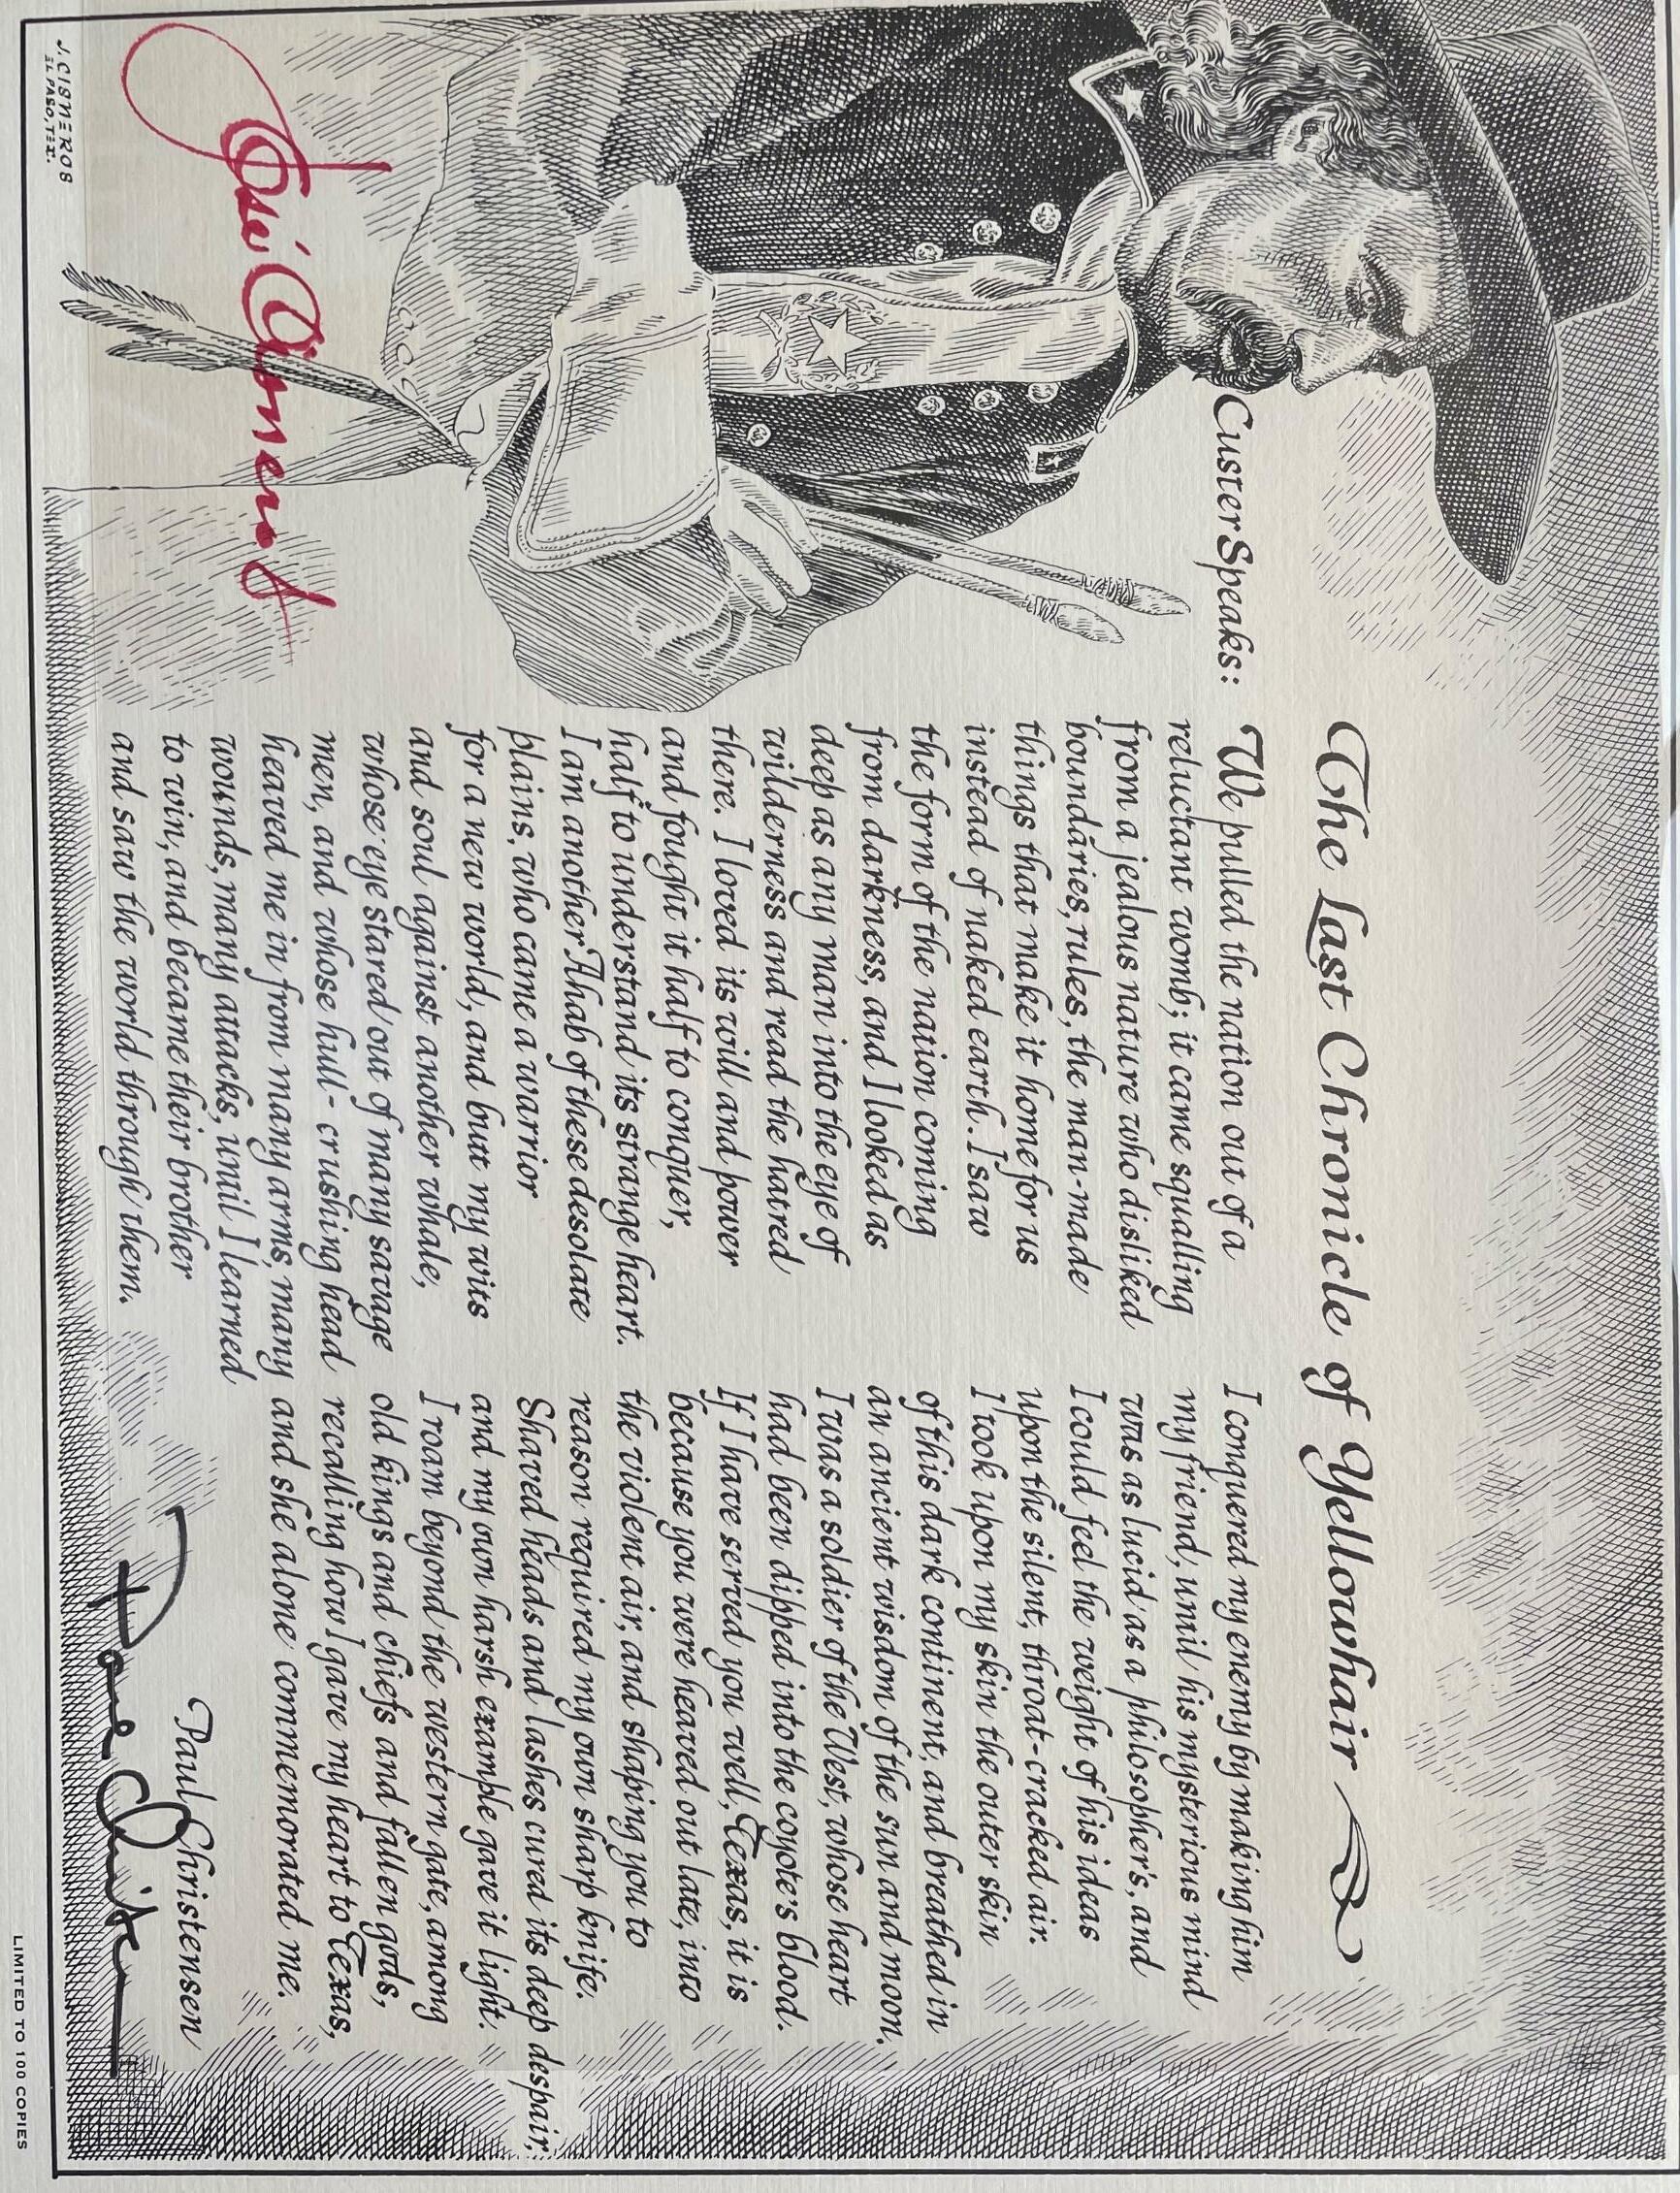 The Last Chronicle of Yellowhair
Custer Speaks:
We pulled the nation out of a
reluctant womb; it came squalling
from a jealous nature who disliked
boundaries, rules, the man-made
things that make it home for us
instead of naked earth. I saw
the form of the nation coming
from darkness, and I looked as
deep as any man into the eye of
wilderness and read the hatred
there. I loved its will and power
and fought it half to conquer,
half to understand its strange heart.
I am another Ahab of these desolate
plains, who came a warrior
for a new world, and but my wits
and soul against another whale,
whose eye stared out of many savage
men, and whose hull-crushing head
heaved me in from many arms, many
wounds, many attacks, until I learned
to win, and became their brother
and saw the world through them.
I conquered my enemy by making him
my friend, until his mysterious mind
was as lucid as a philosopher's, and
I could feel the weight of his ideas
upon the silent, throat-cracked air.
I took upon my skin the outer skin
of this dark continent, and breathed in
an ancient wisdom of the sun and moon.
I was a soldier of the West, whose heart
had been dipped into the coyote's blood.
If I have served you well, Texas, it is
because you were heaved out late, into
the violent air, and shaping you to
reason required my own sharp knife.
Shaved heads and lashes cured its deep despair,
and my own harsh example gave it light.
I roam beyond the western gate, among
old kings and chiefs and fallen gods,
recalling how I gave my heart to Texas,
and she alone commemorated me.
Paul Christensen
José Cisneros
J. CISNEROS
EL PASO, TEX.
LIMITED TO 100 COPIES